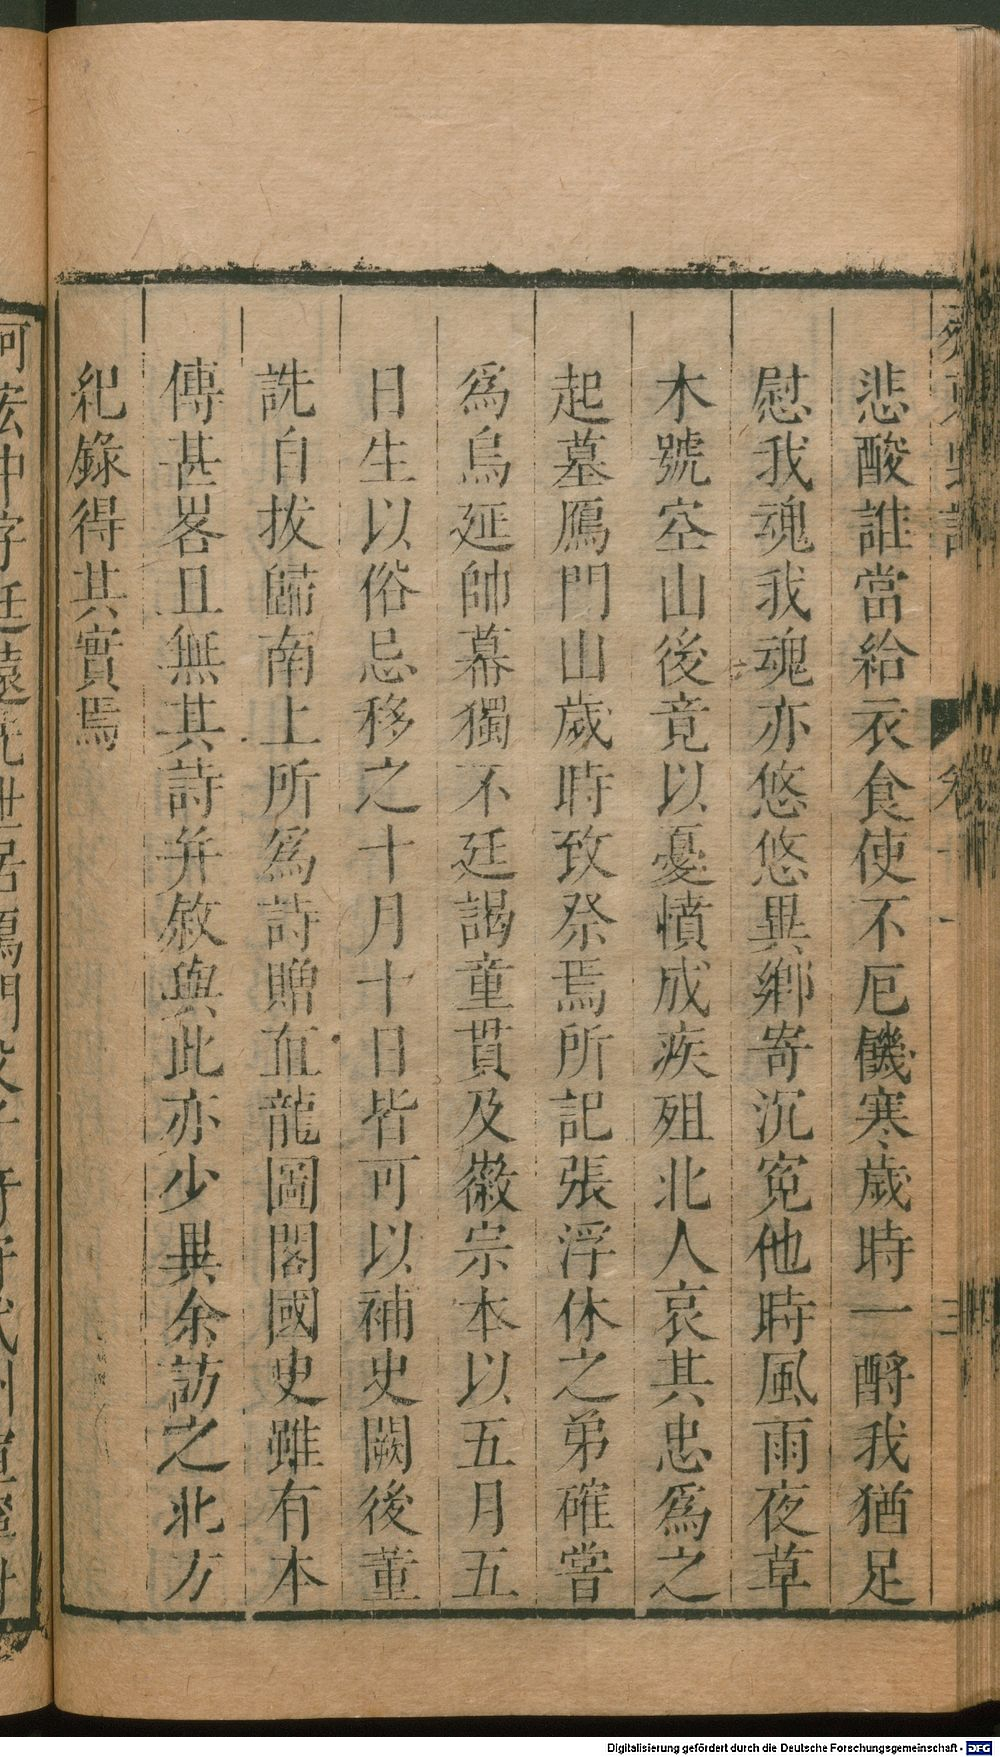 悲酸誰當給衣食使不厄饑寒歲時一酹我猶足
慰我魂我魂亦悠悠異鄉寄沉寃他時風雨夜草
木號空山後竟以憂憤成疾殂北人哀其忠爲之
起墓鴈門山歲時致祭焉所記張浮休之弟確嘗
爲烏延帥幕獨不廷謁童貫及徽宗本以五月五
日生以俗忌移之十月十日皆可以補史闕後董
詵自拔歸南上所爲詩贈直龍圖閣國史雖有本
傳甚畧且無其詩并敘與此亦少異余訪之北方
紀錄得其實焉
Digitalisierung gefördert durch die Deutsche Forschungsgemeinschaft - DFG